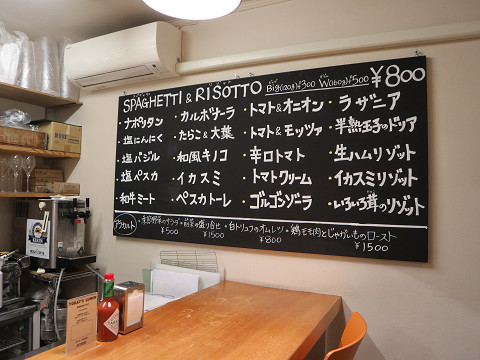 SPAGHETTI & RISOTTO Big(120g)¥300 W(160g)¥500 ¥800
・ナポリタン ・カルボナーラ ・トマト&オニオン ・ラザニア
・塩にんにく ・たらこ&大葉 ・トマト&モッツァ ・半熟玉子のドリア
・塩バジル ・和風キノコ ・辛口トマト ・生ハムリゾット
・塩ペスカ ・イカスミ ・トマトクリーム ・イカスミリゾット
・和牛ミート ・ペスカトーレ ・ゴルゴンゾーラ ・いろいろ茸のリゾット
アラカルト ・季節野菜のサラダ ・前菜の盛り合せ ・白トリュフのオムレツ ・鶏モモ肉とじゃがいものロースト
¥500 ¥1500 ¥800 ¥1500
TODAY'S LUNCH